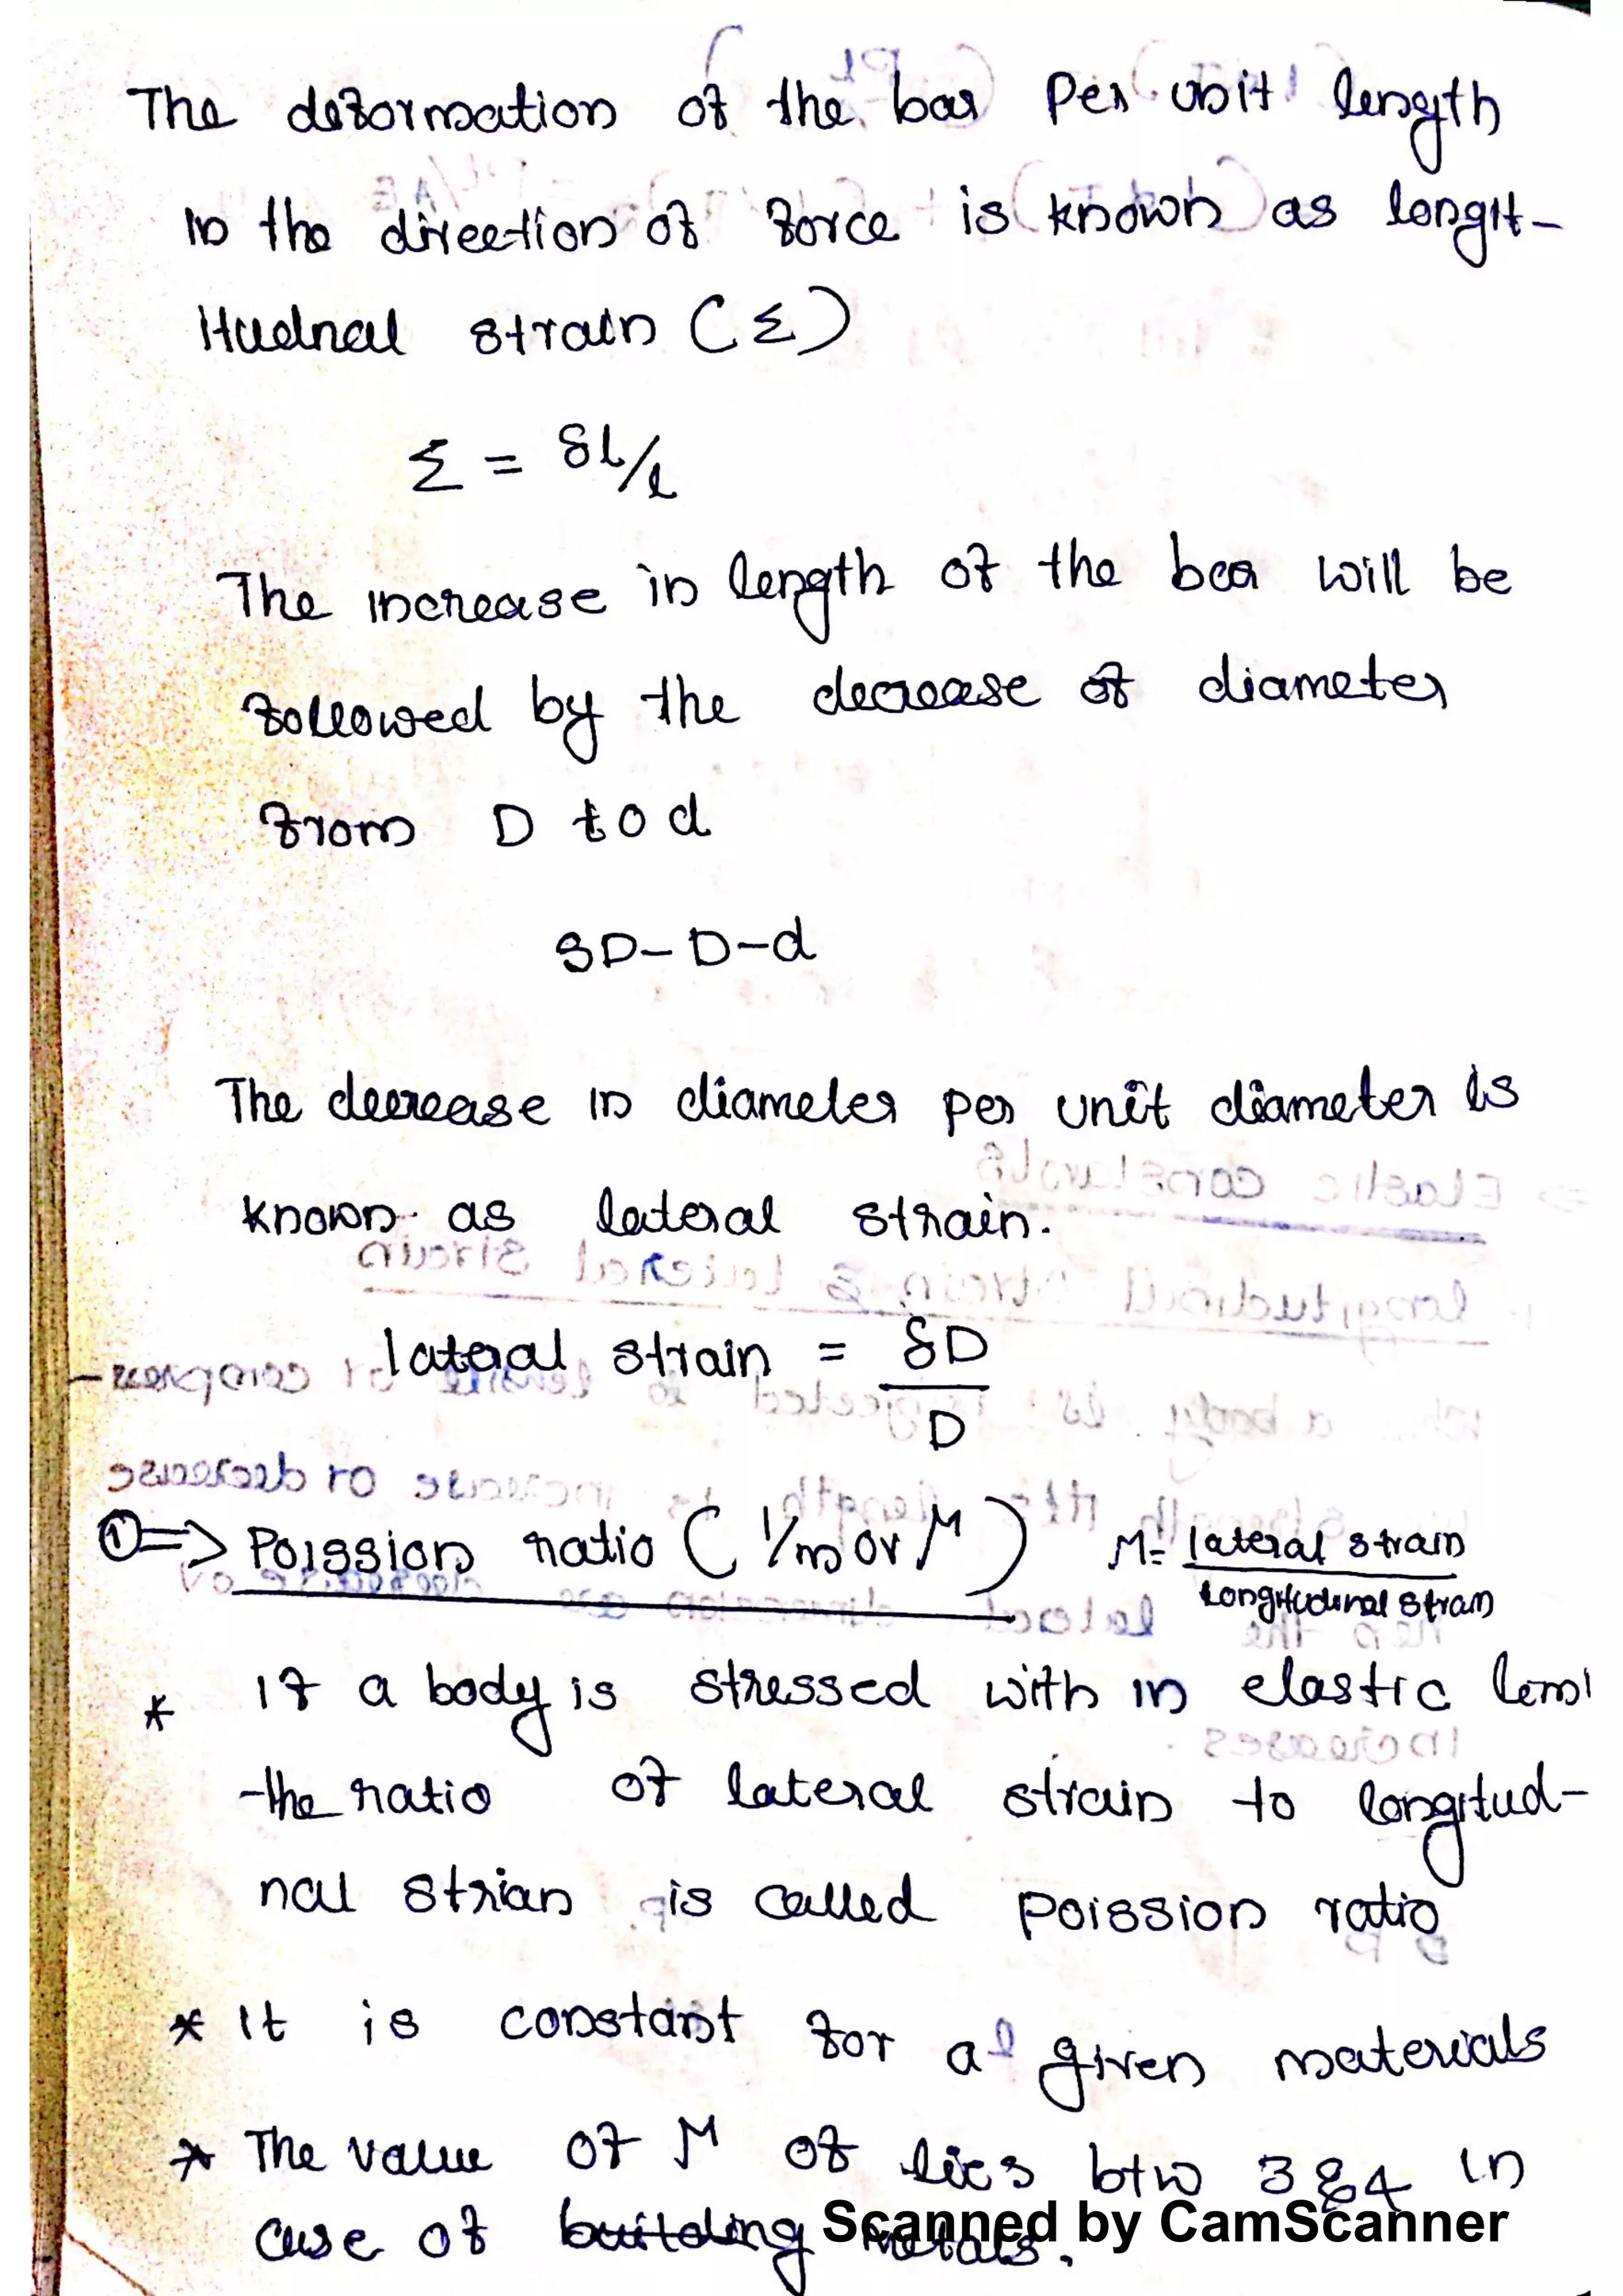 The deformation of the bar Per unit length
in the direction of force is known as longit-
itudnal strain (Σ)
Σ = δl/l
The increase in length of the bar will be
followed by the decrease of diameter
from D to d
δD- D-d
The decrease in diameter per unit diameter is
known as lateral strain.
lateral strain = δD/D
① => Poission ratio ( 1/m or μ ) μ = lateral strain/longitudinal strain
* If a body is stressed with in elastic limi
the ratio of lateral strain to longitud-
nal strian is called poission ratio
* It is constant for a given materials
* The value of μ of lies btw 3 & 4 in
case of building metals.
Scanned by CamScanner